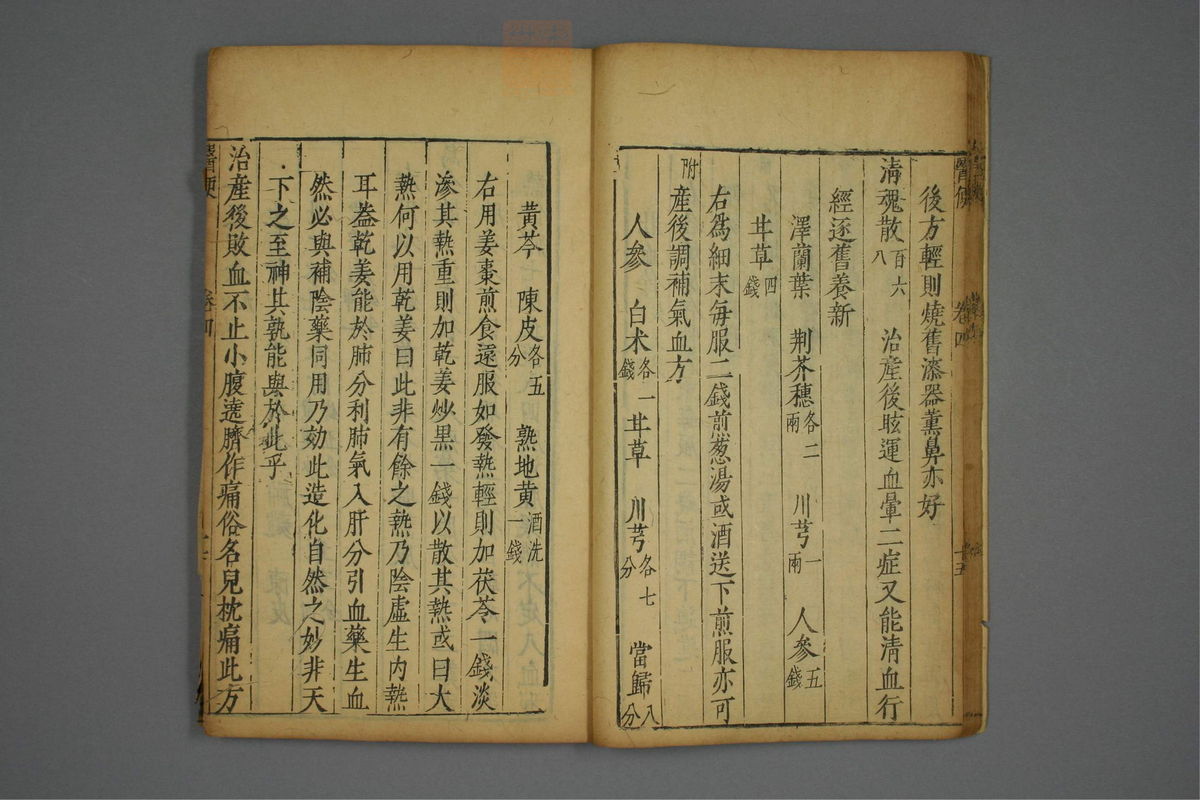 後方輕則燒舊漆器薰鼻亦好
淸魂散百六八 治産後眩運血暈二症又能淸血行
經逐舊養新
澤蘭葉 荆芥穗各二兩 川芎一兩 人參五錢
甘草四錢
右爲細末每服二錢煎葱湯或酒送下煎服亦可
附産後調補氣血方
人參 白朮各一錢 甘草 川芎各七分 當歸八分
黃芩 陳皮各五分 熟地黃酒洗一錢
右用姜棗煎食遠服如發熱輕則加茯苓一錢淡
滲其熱重則加乾姜炒黑一錢以散其熱或曰大
熱何以用乾姜曰此非有餘之熱乃陰虛生內熱
耳蓋乾姜能於肺分利肺氣入肝分引血藥生血
然必與補陰藥同用乃効此造化自然之妙非天
下之至神其孰能與於此乎
治産後敗血不止小腹遶臍作痛俗名兒枕痛此方
醫便
卷四
十五